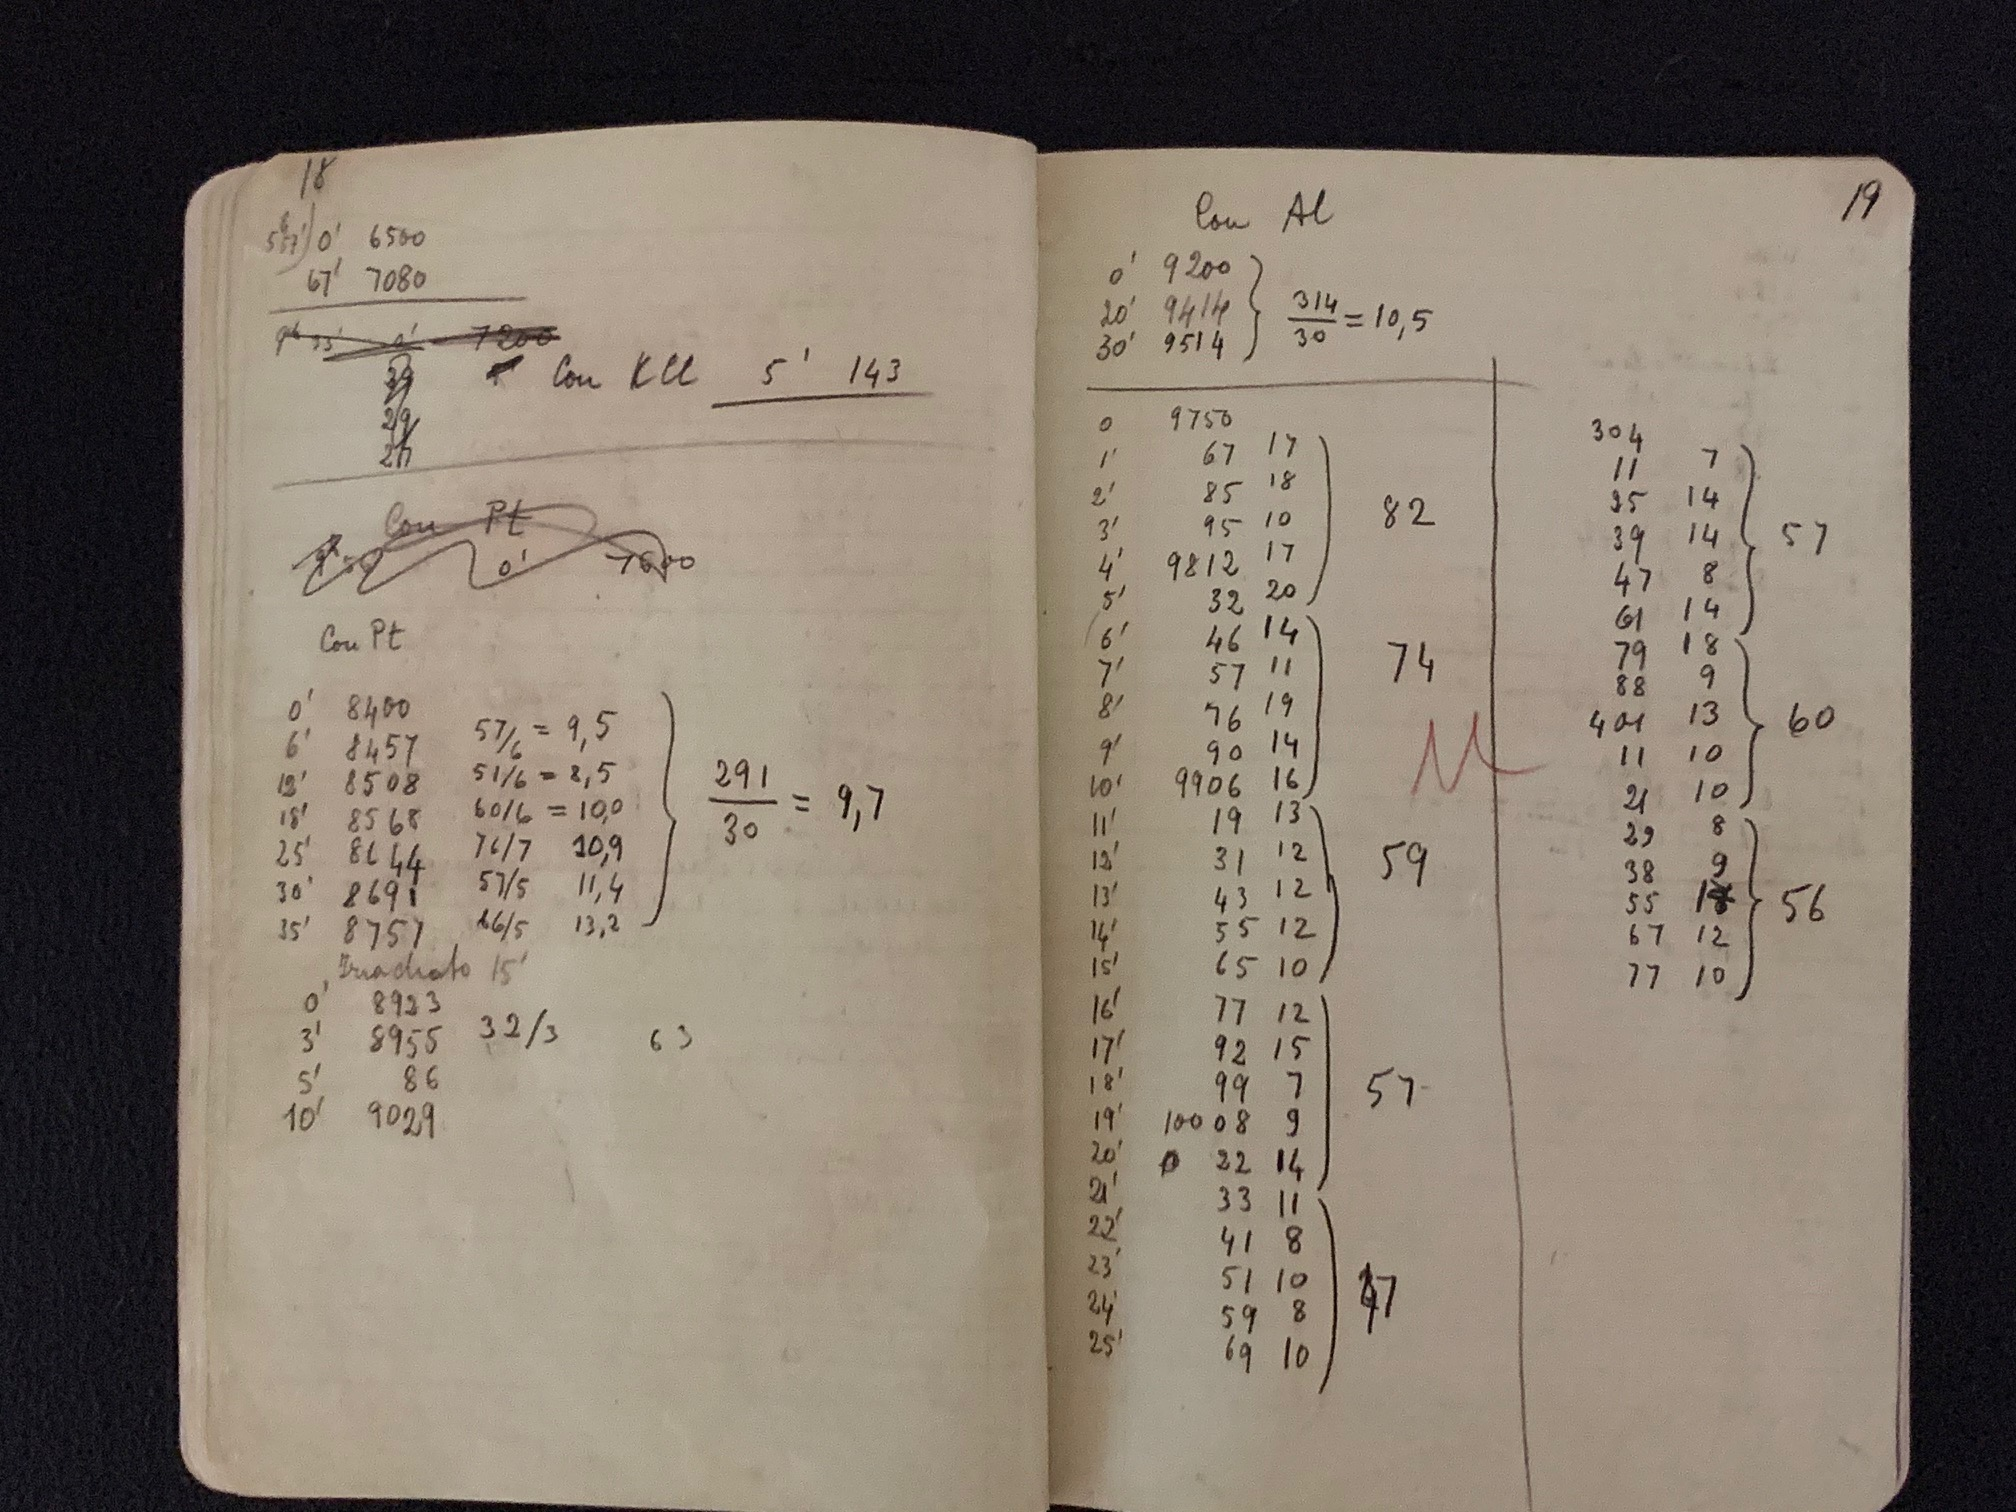 18
0' 6500
67' 7080
0' 7200
Con KCl 5' 143
29
Con Pt
0' 7600
Con Pt
0' 8400
6' 8457 57/6 = 9,5
12' 8508 51/6 = 8,5
18' 8568 60/6 = 10,0
25' 8644 76/7 10,9
30' 8691 57/5 11,4
35' 8757 66/5 13,2
291/30 = 9,7
Irradiato 15'
0' 8923
3' 8955 32/3 63
5' 86
10' 9029
19
Con Al
0' 9200
20' 9414
30' 9514
314/30 = 10,5
0 9750
1' 67 17
2' 85 18
3' 95 10
4' 9812 17
5' 32 20
82
6' 46 14
7' 57 11
8' 76 19
9' 90 14
10' 9906 16
74
11' 19 13
12' 31 12
13' 43 12
14' 55 12
15' 65 10
59
16' 77 12
17' 92 15
18' 99 7
19' 10008 9
20' 22 14
57
21' 33 11
22' 41 8
23' 51 10
24' 59 8
25' 69 10
47
304
11 7
25 14
39 14
47 8
61 14
57
79 18
88 9
401 13
11 10
21 10
60
29 8
38 9
55
67 12
77 10
56